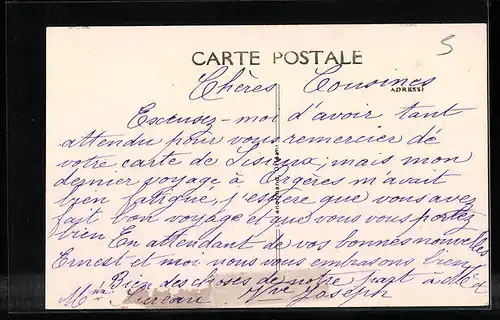 5
CARTE POSTALE
ADRESSE
Chères Cousines
Excusez-moi d'avoir tant
attendu pour vous remercier de
votre carte de Lisieux; mais mon
dernier voyage à Orgères m'avait
bien fatigué, j'espère que vous avez
fait bon voyage et que vous vous portez
bien. En attendant de vos bonnes nouvelles
Ernest et moi nous vous embrassons bien
Bien des choses de notre part à Mr &
Mme Joseph